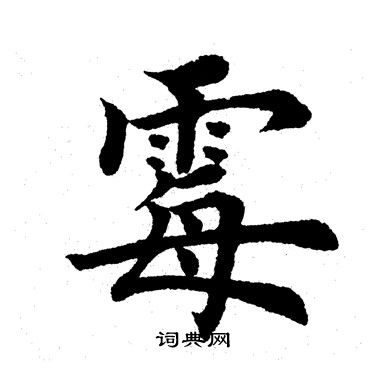 霉
词典网